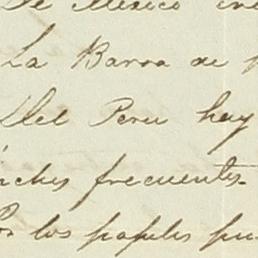 De Mexico
La Barra de
Del Peru hay
frecuentes.
Por los papeles